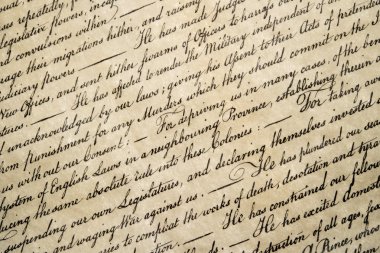 repeatedly, for
legislative powers, incap
convulsions within. —
rage their migrations hither, and raising
judiciary powers — He has made Judges
New Offices, and sent hither swarms of Officers to harrass our
tures — He has affected to render the Military independent of an
unacknowledged by our laws; giving his Assent to their Acts of pretended
from punishment for any Murders which they should commit on the I
us without our Consent: — For depriving us in many cases, of the ben
System of English Laws in a neighbouring Province, establishing therein an
ducing the same absolute rule into these Colonies: — For taking aw
suspending our own Legislatures, and declaring themselves invested w
and waging War against us. — He has plundered our sea
to compleat the works of death, desolation and tyra
He has constrained our fellow
He has excited domest
destruction of all ages,
A Prince, whos